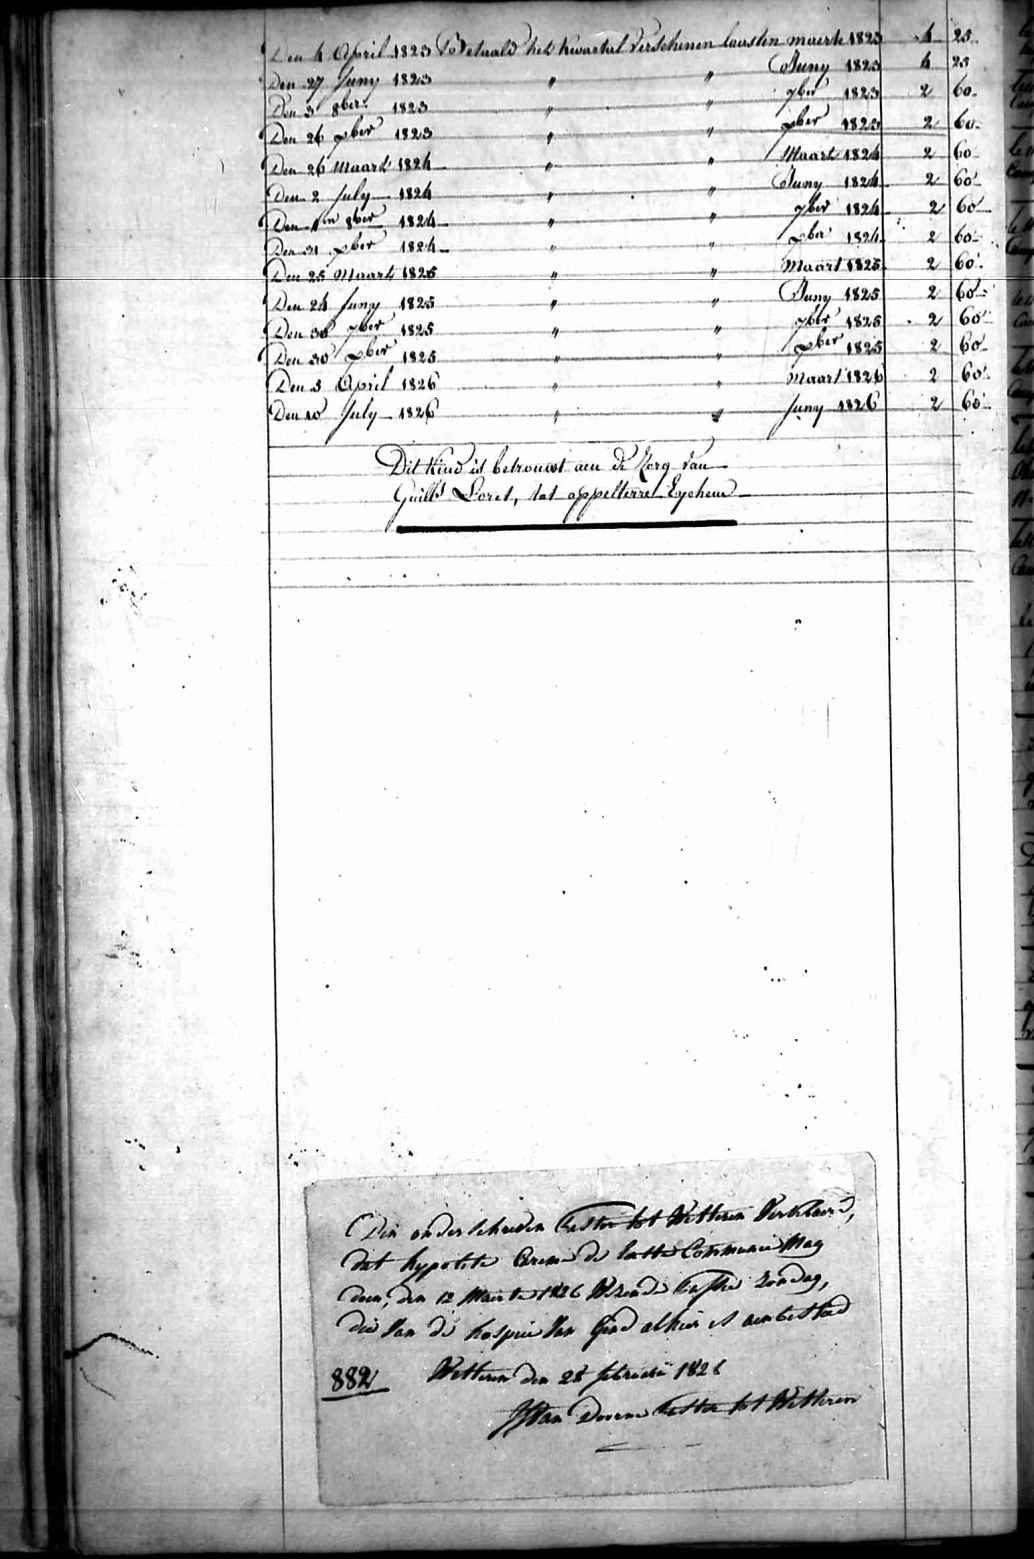 Den 4 April 1823 Betaald het Kwartal Verschenen laasten maerte 1823 4 25
Den 27 Juny 1823 " " Juny 1823 4 25
Den 3 8ber 1823 " " 7ber 1823 2 60
Den 26 xber 1823 " " xber 1823 2 60
Den 26 Maart 1824 " " Maart 1824 2 60
Den 2 July 1824 " " Juny 1824 2 60
Den 1en 8ber 1824 " " 7ber 1824 2 60
Den 31 xber 1824 " " xber 1824 2 60
Den 25 Maart 1825 " " Maart 1825 2 60
Den 24 Juny 1825 " " Juny 1825 2 60
Den 30 7ber 1825 " " 7ber 1825 2 60
Den 30 xber 1825 " " xber 1825 2 60
Den 3 April 1826 " " Maart 1826 2 60
Den 10 July 1826 " " Juny 1826 2 60
Dit Kind is betrouwt aen de Zorg van
Guillls Loret, tot appelterre Eychem
Den onderschreven Pastor tot Wetteren Verklaerd,
dat hypolite de latte Communie Mag
doen, den 12 Maerte 1826 Wezende Zondag,
die van de hospice van Gend alhier is aenbesteed
882 Wetteren den 28 februari 1826
Van Doorne Pastor tot Wetteren